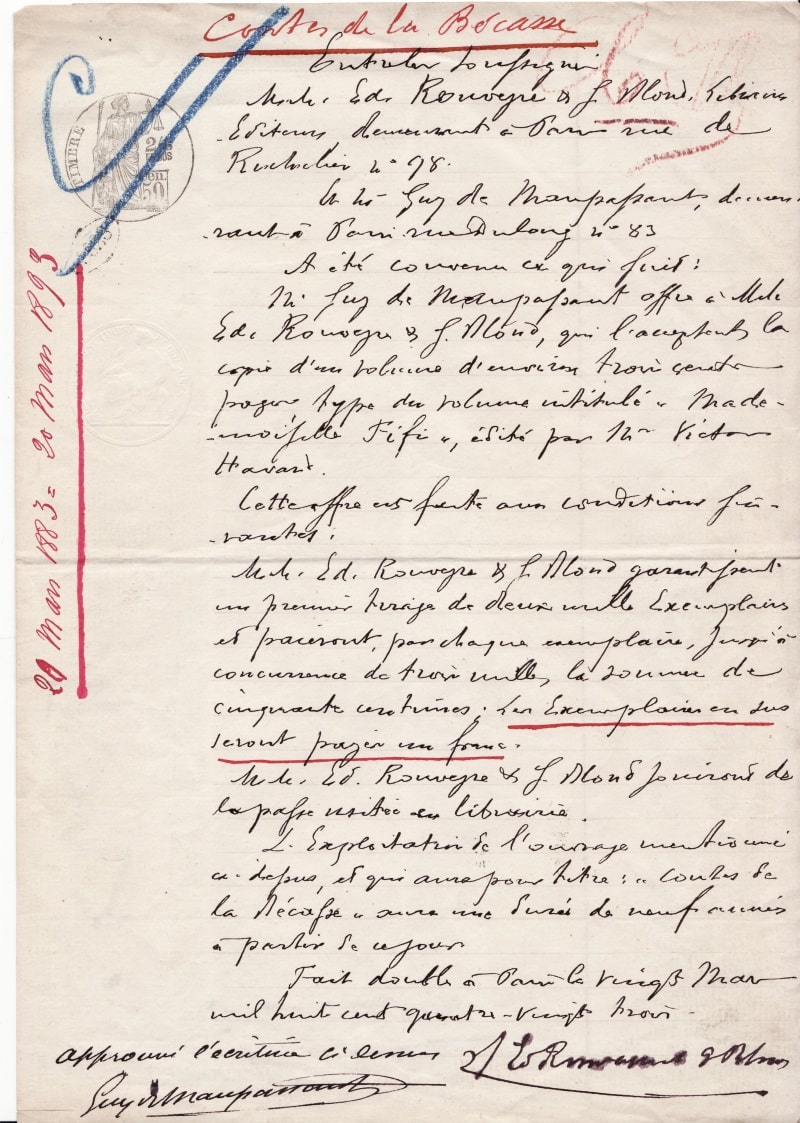 Contes de la Bécasse
Entre les soussignés
MM. Ed. Rouveyre & G. Blond, Libraires
Editeurs, demeurant à Paris rue de
Richelieu n° 98.
Et Mr Guy de Maupassant, demeu-
-rant à Paris rue Dulong n° 83
A été convenu ce qui suit :
Mr Guy de Maupassant offre à MM.
Ed. Rouveyre & G. Blond, qui l'acceptent, la
copie d'un volume d'environ trois cents
pages, type du volume intitulé « Made-
-moiselle Fifi », édité par Mr Victor
Havard.
Cette offre est faite aux conditions sui-
-vantes :
MM. Ed. Rouveyre & G. Blond garantissent
un premier tirage de deux mille Exemplaires
et paieront, par chaque exemplaire, jusqu'à
concurrence de trois mille, la somme de
cinquante centimes ; Les Exemplaires en sus
seront payés un franc.
MM. Ed. Rouveyre & G. Blond jouiront de
la passe usitée en librairie.
L'Exploitation de l'ouvrage mentionné
ci-dessus, et qui aura pour titre : « Contes de
la Bécasse » aura une durée de neuf années
à partir de ce jour
Fait double à Paris le vingt Mars
mil huit cent quatre-vingt trois.
approuvé l'écriture ci dessus
Guy de Maupassant
Ed Rouveyre & G Blond
20 Mars 1883 = 20 Mars 1893
TIMBRE
50